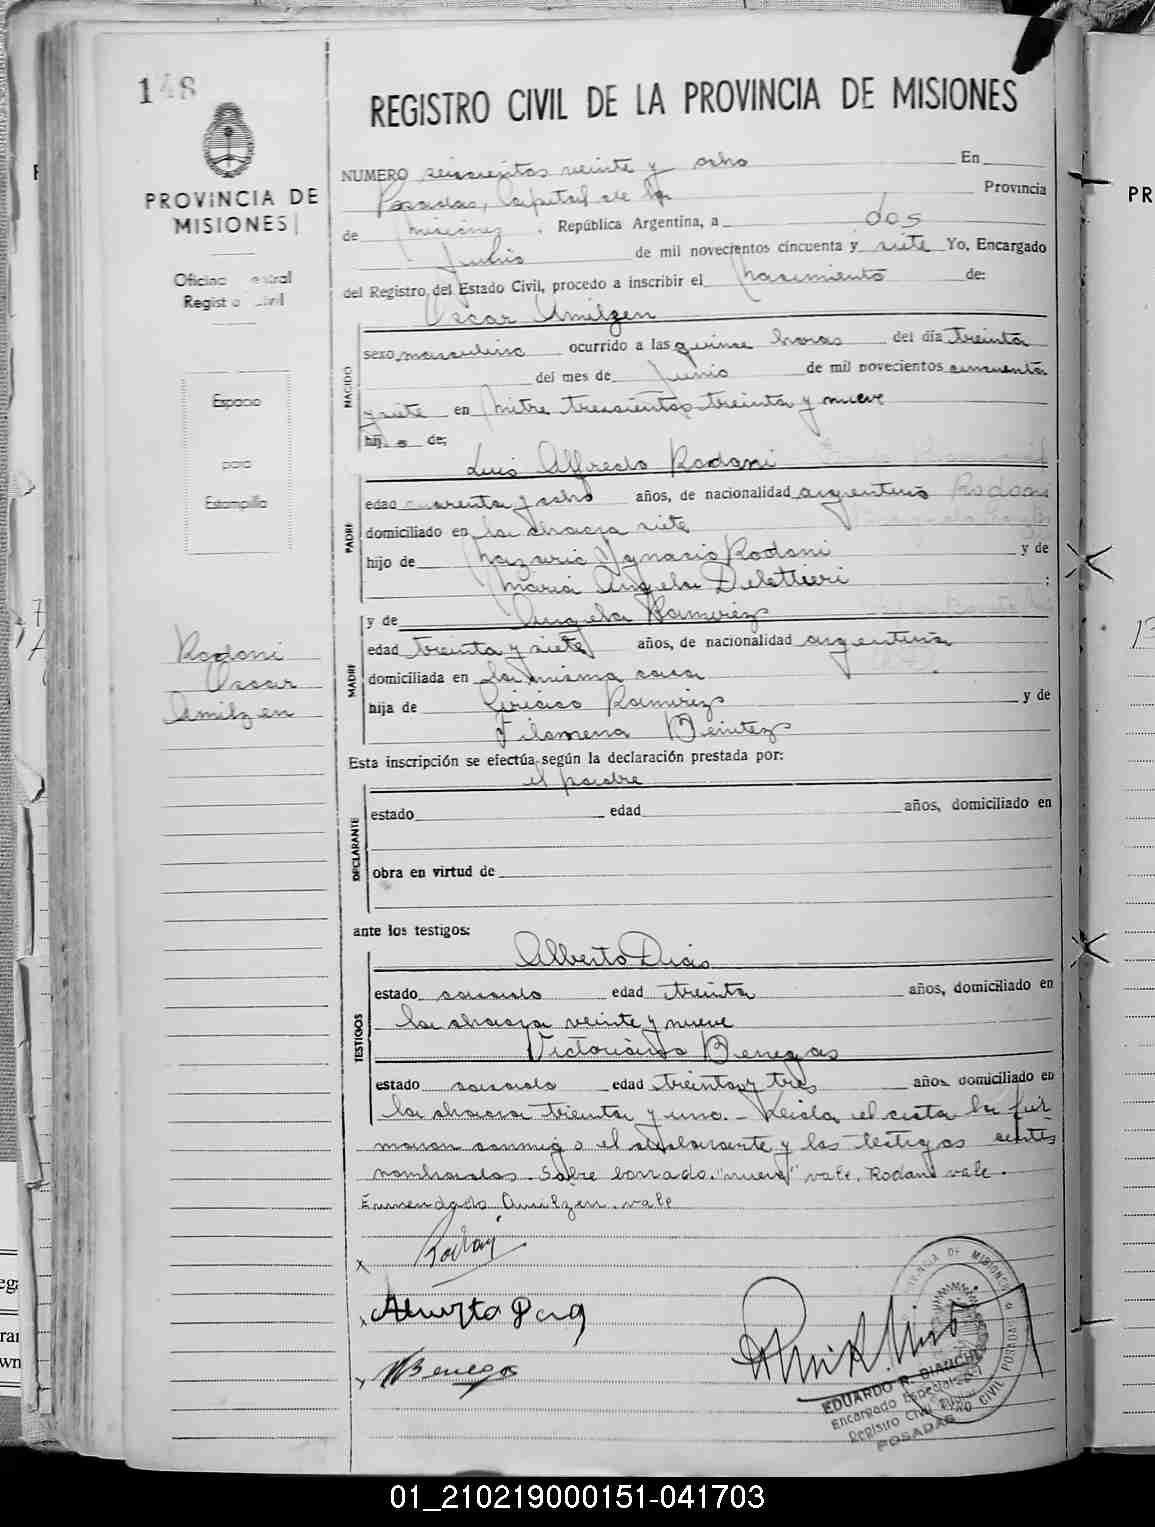 148
PROVINCIA DE
MISIONES
Oficina Central
Registro Civil
Espacio
para
Estampilla
Rodani
Oscar
Amilzen
REGISTRO CIVIL DE LA PROVINCIA DE MISIONES
NUMERO seiscientos veinte y ocho En
Posadas, Capital de la Provincia
de Misiones, República Argentina, a dos
Junio de mil novecientos cincuenta y siete Yo, Encargado
del Registro del Estado Civil, procedo a inscribir el Nacimiento de:
Oscar Amilzen
NACIDO
sexo masculino ocurrido a las quince horas del día treinta
del mes de Junio de mil novecientos cincuenta
y siete en Mitre trescientos treinta y nueve
hijo de:
Luis Alfredo Rodani
PADRE
edad cuarenta y ocho años, de nacionalidad argentino Rodani
domiciliado en la chacra siete
hijo de Nazario Ygnacio Rodani y de
Maria Angela Delettieri ;
y de Angela Ramirez
MADRE
edad treinta y siete años, de nacionalidad argentina
domiciliada en la misma casa
hija de Ramirez y de
Filomena Benitez
Esta inscripción se efectúa según la declaración prestada por:
el padre
DECLARANTE
estado edad años, domiciliado en
obra en virtud de
ante los testigos:
Alberto Dias
TESTIGOS
estado casado edad treinta años, domiciliado en
la chacra veinte y nueve
Victoriano Benegas
estado casado edad treinta y tres años domiciliado en
la chacra trienta y uno.- Leida el acta la fir
maron conmigo el declarante y los testigos antes
nombrados. Sobre borrado. "nueve" vale. Rodani vale.
Enmendado Amilzen. vale
x
x
x Benegas
PROVINCIA DE MISIONES
REGISTRO CIVIL POSADAS
EDUARDO R. BIANCHI
Encargado Especializado
Registro Civil
POSADAS
PR
01_210219000151-041703